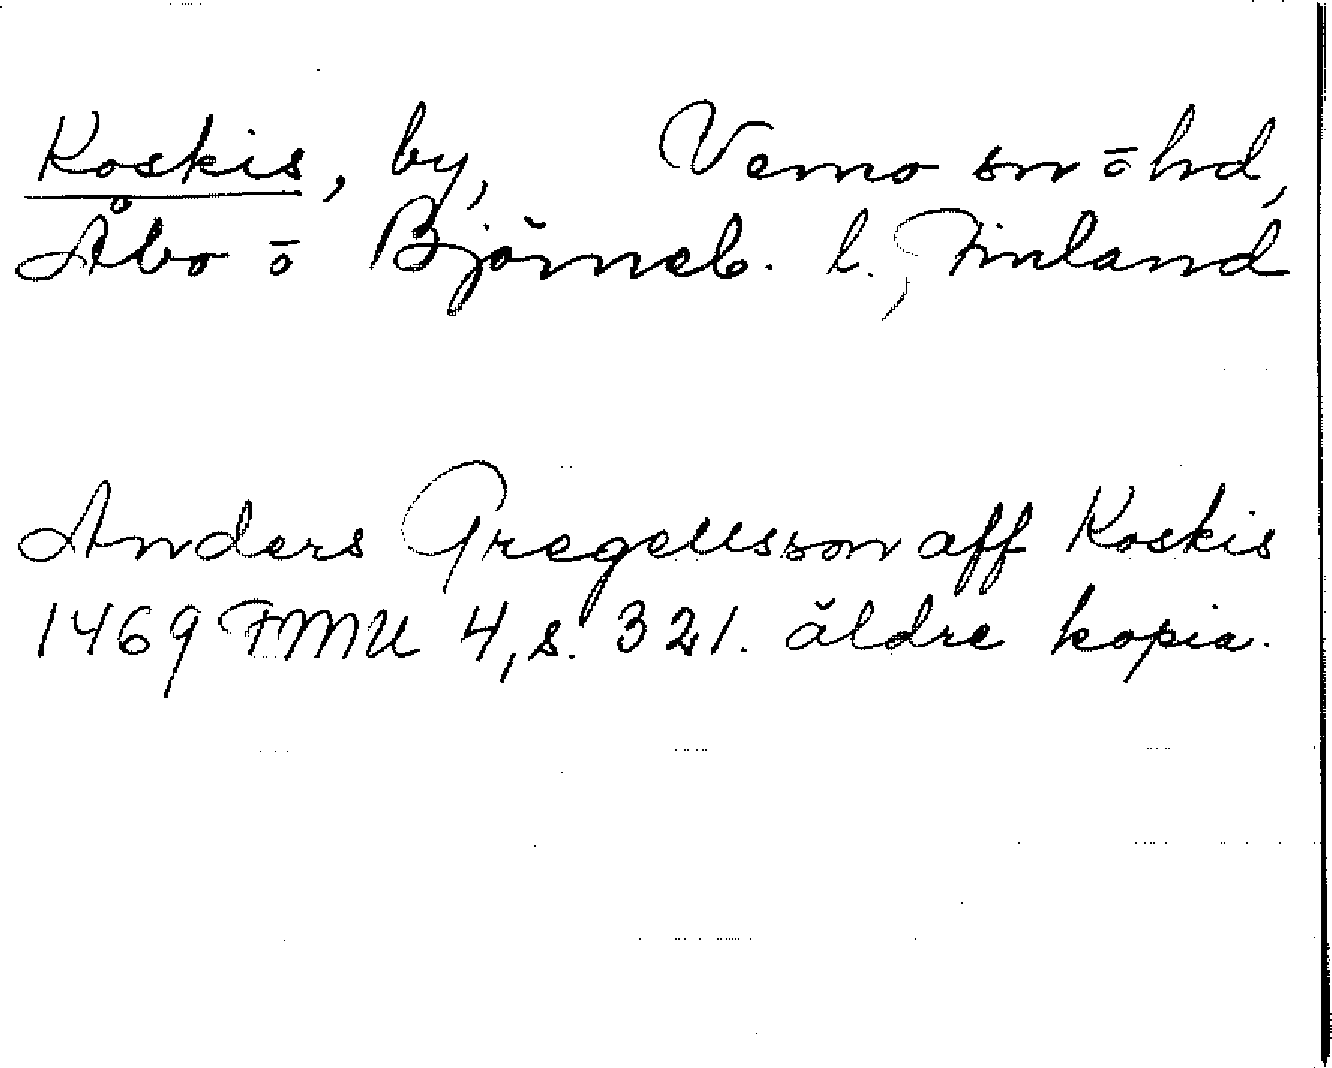 Koskis, by, Vemo sn o hd,
Åbo o Björneb. l., Finland
Anders Gregerssson aff Koskis
1469 FMU 4, s. 321. äldre kopia.